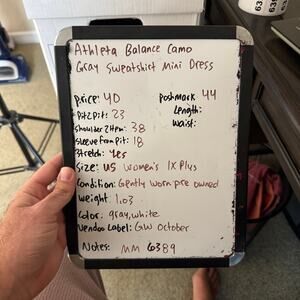 Athleta Balance Camo
Gray Sweatshirt Mini Dress
Price: 40
Poshmark 44
Pit2Pit: 23
Length:
Shoulder 2 Hem: 38
Waist:
Sleeve from Pit: 18
Stretch: Yes
Size: US Women's 1X Plus
Condition: Gently worn pre owned
Weight 1.03
Color: gray, white
Vendoo Label: GW October
Notes: MM 6389